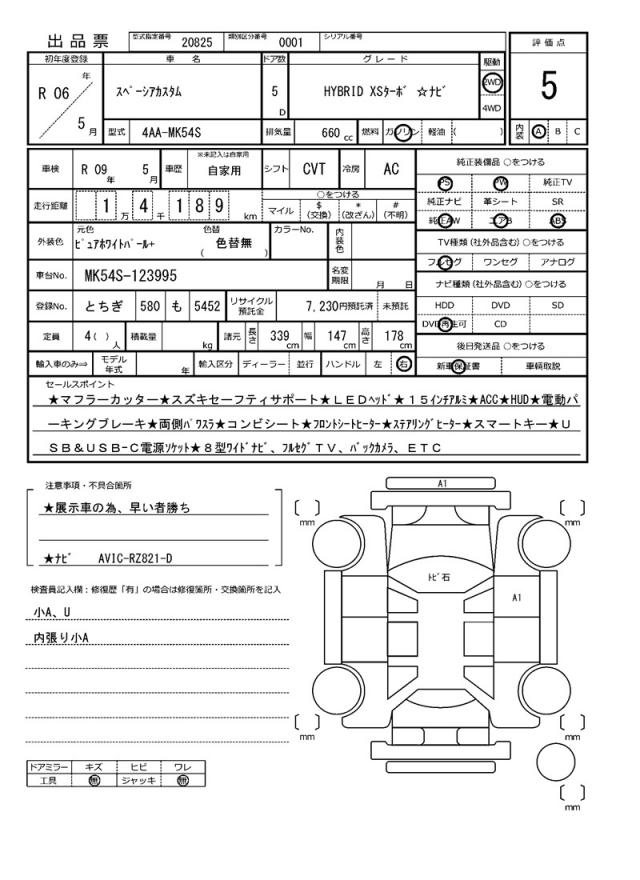 出品票 型式指定番号 20825 類別区分番号 0001 シリアル番号
評価点
初年度登録 車名 ドア数 グレード 駆動
R 06 年 5 月 スペーシアカスタム 5 D HYBRID XSターボ ☆ナビ 2WD 4WD
5
型式 4AA-MK54S 排気量 660 cc 燃料 ガソリン 軽油 ( ) 内装 A B C
車検 R 09 年 5 月 車歴 ※未記入は自家用 自家用 シフト CVT 冷房 AC
純正装備品 ○をつける
PS PW 純正TV
純正ナビ 革シート SR
純正AW エアB ABS
走行距離 1 万 4 千 1 8 9 km ○をつける マイル $ (交換) * (改ざん) # (不明)
TV種類 (社外品含む) ○をつける
フルセグ ワンセグ アナログ
外装色 元色 ピュアホワイトパール+ 色替 ( 色替無 ) カラーNo. 内装色
車台No. MK54S-123995 名変期限 月 日
ナビ種類 (社外品含む) ○をつける
HDD DVD SD
DVD再生可 CD
登録No. とちぎ 580 も 5452 リサイクル預託金 7,230円預託済 未預託
定員 4( ) 人 積載量 kg 諸元 長さ 339 cm 幅 147 cm 高さ 178 cm
後日発送品 ○をつける
新車保証書 車輌取説
輸入車のみ⇨ モデル年式 年 輸入区分 ディーラー 並行 ハンドル 左 右
セールスポイント
★マフラーカッター★スズキセーフティサポート★ＬＥＤヘッド★１５インチアルミ★ACC★HUD★電動パ
ーキングブレーキ★両側パワスラ★コンビシート★フロントシートヒーター★ステアリングヒーター★スマートキー★U
ＳＢ＆ＵＳＢ-Ｃ電源ソケット★８型ワイドナビ、フルセグＴＶ、バックカメラ、ＥＴＣ
注意事項・不具合箇所
★展示車の為、早い者勝ち
★ナビ AVIC-RZ821-D
検査員記入欄：修復歴「有」の場合は修復箇所・交換箇所を記入
小A、U
内張り小A
ドアミラー キズ ヒビ ワレ
工具 無 ジャッキ 無
A1
トビ石
A1
[ ] mm
[ ] mm
[ ] mm
[ ] mm
[ ] mm